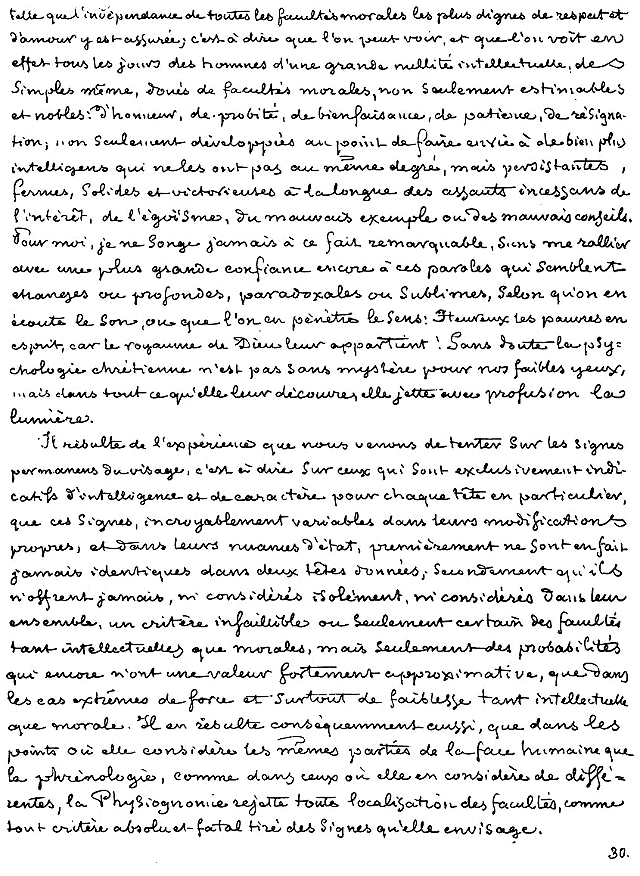 telle que l'indépendance de toutes les facultés morales les plus dignes de respect et
d'amour y est assurée; c'est à dire que l'on peut voir, et que l'on voit en
effet tous les jours des hommes d'une grande nullité intellectuelle, de
simples même, doués de facultés morales, non seulement estimables
et nobles: d'honneur, de probité, de bienfaisance, de patience, de résigna-
tion; non seulement développées au point de faire envie à de bien plus
intelligens qui ne les ont pas au même degré, mais persistantes,
fermes, solides et victorieuses à la longue des assauts incessans de
l'intérêt, de l'égoïsme, du mauvais exemple ou des mauvais conseils.
Pour moi, je ne songe jamais à ce fait remarquable, sans me rallier
avec une plus grande confiance encore à ces paroles qui semblent
étranges ou profondes, paradoxales ou sublimes, selon qu'on en
écoute le son, ou que l'on en pénètre le sens: Heureux les pauvres en
esprit, car le royaume de Dieu leur appartient! Sans doute la psy=
chologie chrétienne n'est pas sans mystère pour nos faibles yeux,
mais dans tout ce qu'elle leur découvre, elle jette avec profusion la
lumière.
Il résulte de l'expérience que nous venons de tenter sur les signes
permanens du visage, c'est à dire sur ceux qui sont exclusivement indi-
catifs d'intelligence et de caractère pour chaque tête en particulier,
que ces signes, incroyablement variables dans leurs modifications
propres, et dans leurs nuances d'état, premièrement ne sont en fait
jamais identiques dans deux têtes données; secondement qu'ils
n'offrent jamais, ni considérés isolément, ni considérés dans leur
ensemble, un critère infaillible ou seulement certain des facultés
tant intellectuelles que morales, mais seulement des probabilités
qui encore n'ont une valeur fortement approximative, que dans
les cas extrêmes de force et surtout de faiblesse tant intellectuelle
que morale. Il en résulte conséquemment aussi, que dans les
points où elle considère les mêmes parties de la face humaine que
la phrénologie, comme dans ceux où elle en considère de diffé=
rentes, la Physiognomie rejette toute localisation des facultés, comme
tout critère absolu et fatal tiré des signes qu'elle envisage.
30.